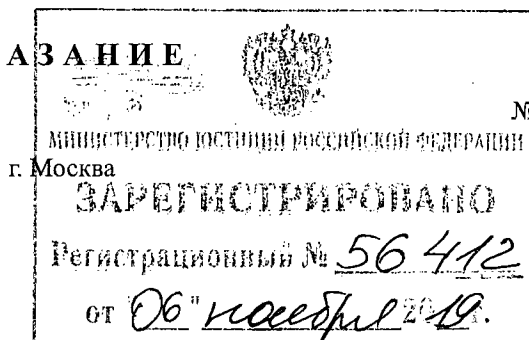 АЗАНИЕ
№
МИНИСТЕРСТВО ЮСТИЦИИ РОССИЙСКОЙ ФЕДЕРАЦИИ
г. Москва
ЗАРЕГИСТРИРОВАНО
Регистрационный № 56412
от "06" ноября 2019.